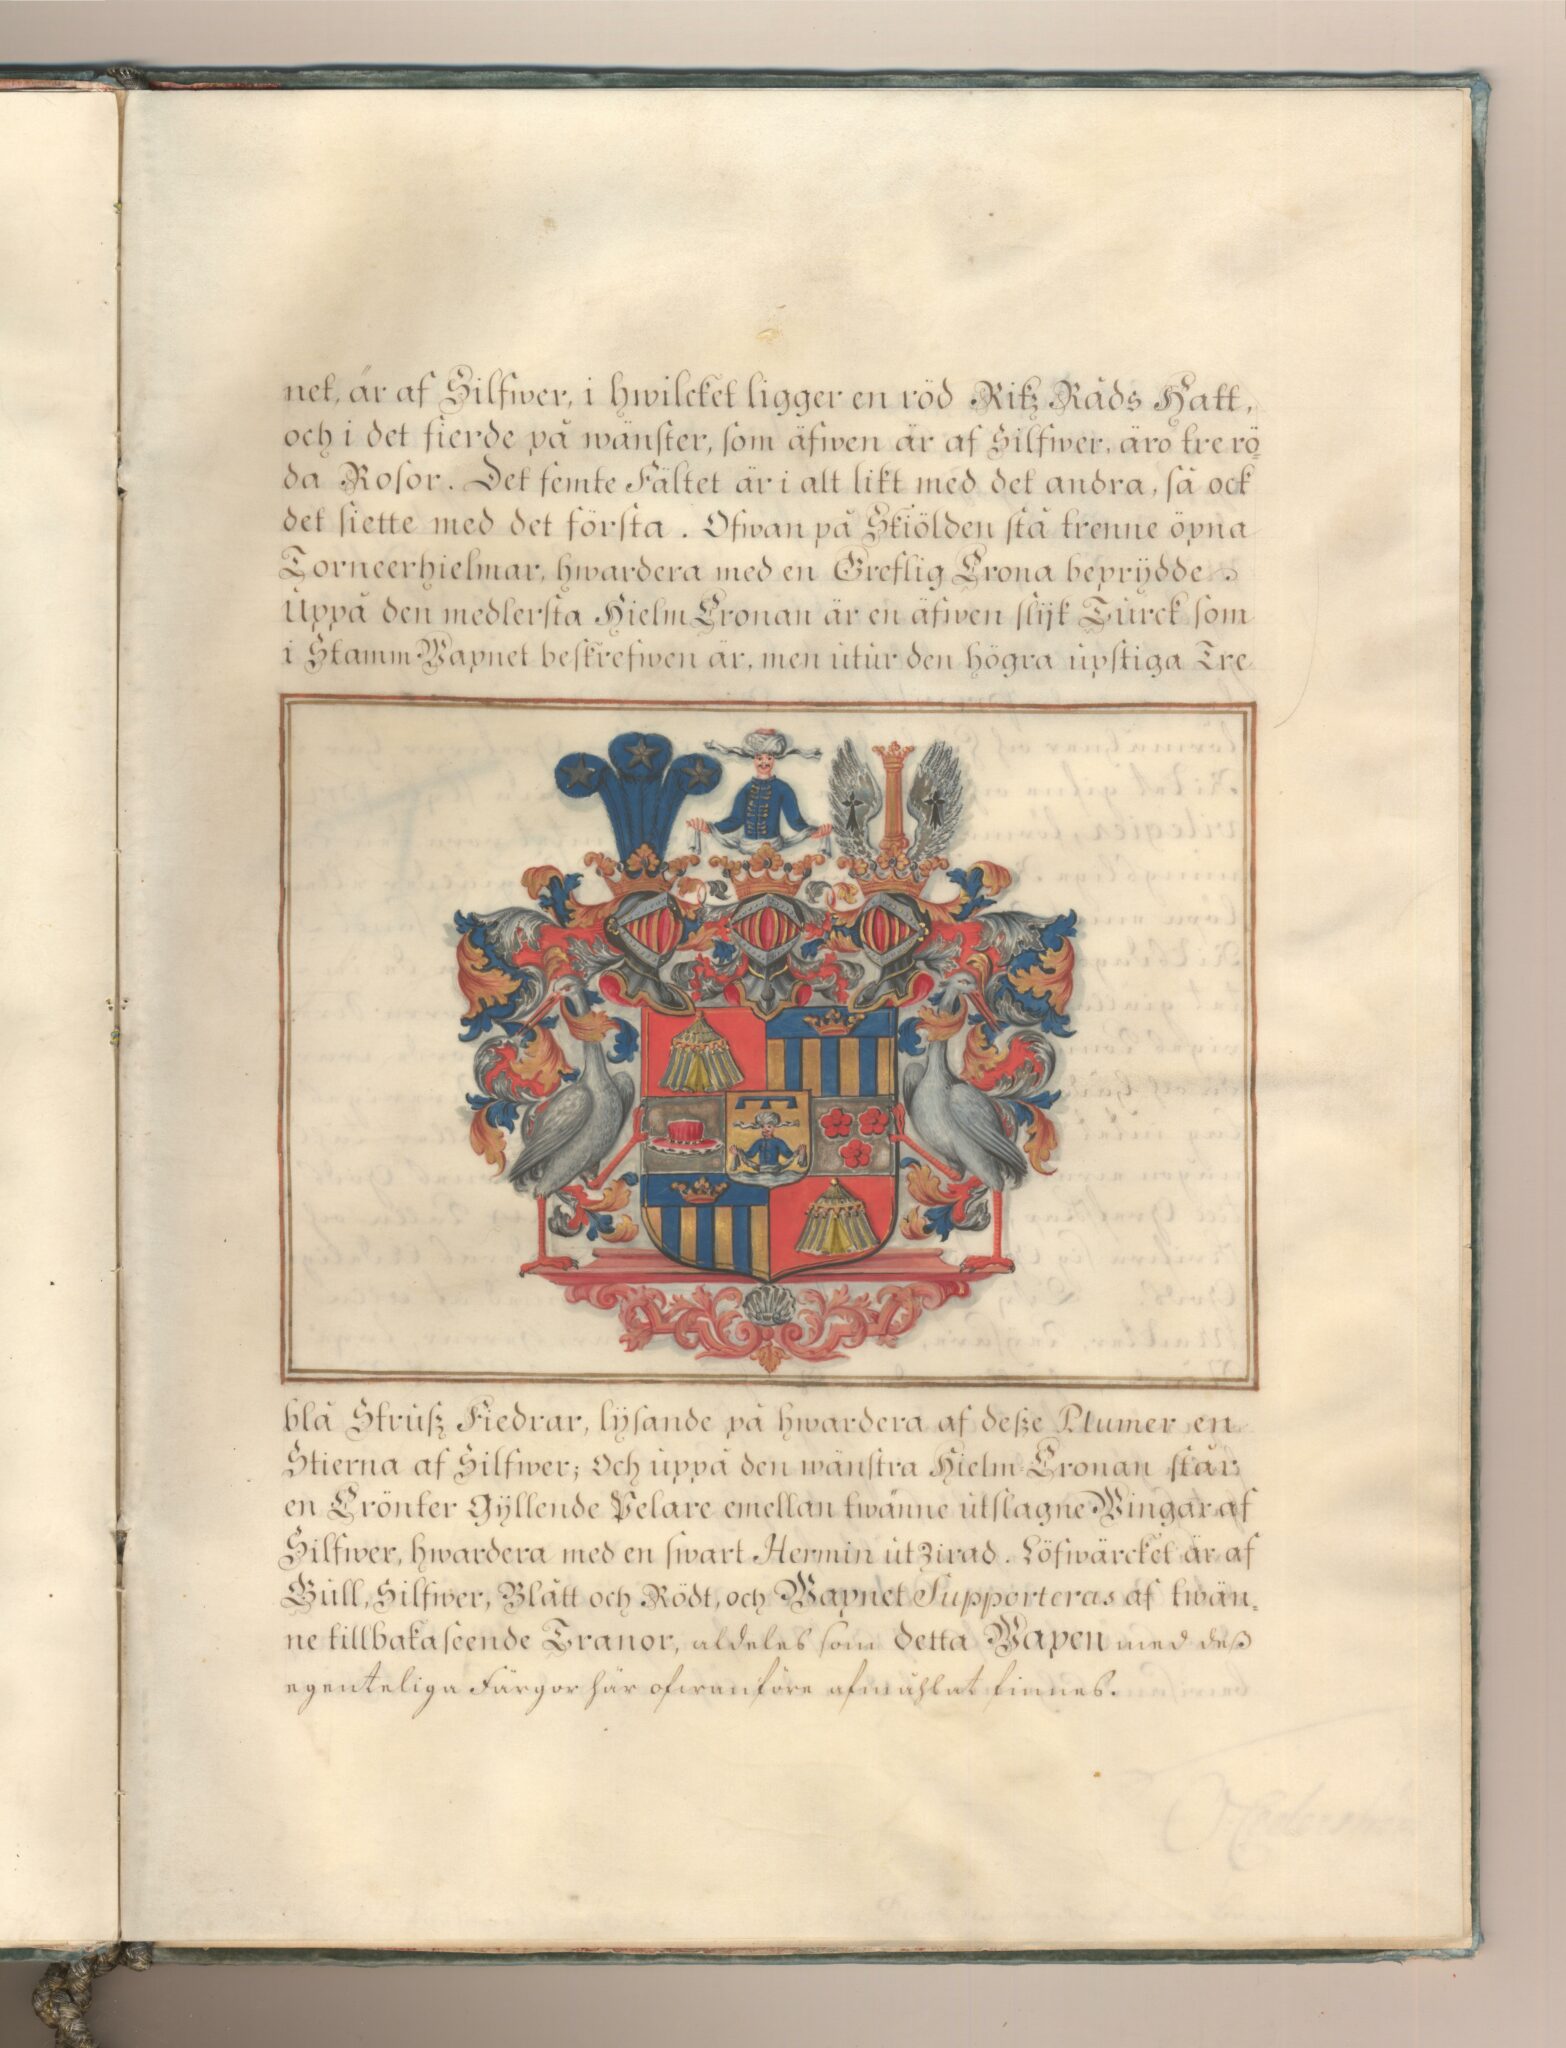 net, är af Silfwer, i hwilcket ligger en röd Rikz Råds Hatt,
och i det fierde på wänster, som äfwen är af Silfwer, äro tre rö-
da Rosor. Det femte Fältet är i alt likt med det andra, så ock
det siette med det första. Ofwan på Skiölden stå trenne öpna
Torneerhielmar, hwardera med en Greflig Crona beprÿdde.
Uppå den medlersta Hielm Cronan är en äfwen slÿk Turck som
i Stamm-Wapnet beskrefwen är, men utur den högra upstiga Tre
blå Struſz Fiedrar, lÿsande på hwardera af deſze Plumer en
Stierna af Silfwer; Och uppå den wänstra Hielm-Cronan står
en Crönter Gÿllende Pelare emellan twänne utslagne Wingar af
Silfwer, hwardera med en swart Hermin utzirad. Löfwärcket är af
Gull, Silfwer, Blått och Rödt, och Wapnet Supporteras af twän-
ne tillbakaseende Tranor, aldeles som detta Wapen med deß
egenteliga Färgor här ofwanföre afmåhlat finnes.